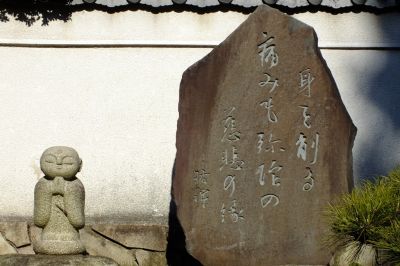 身を削る
病みも弥陀の
慈悲の縁